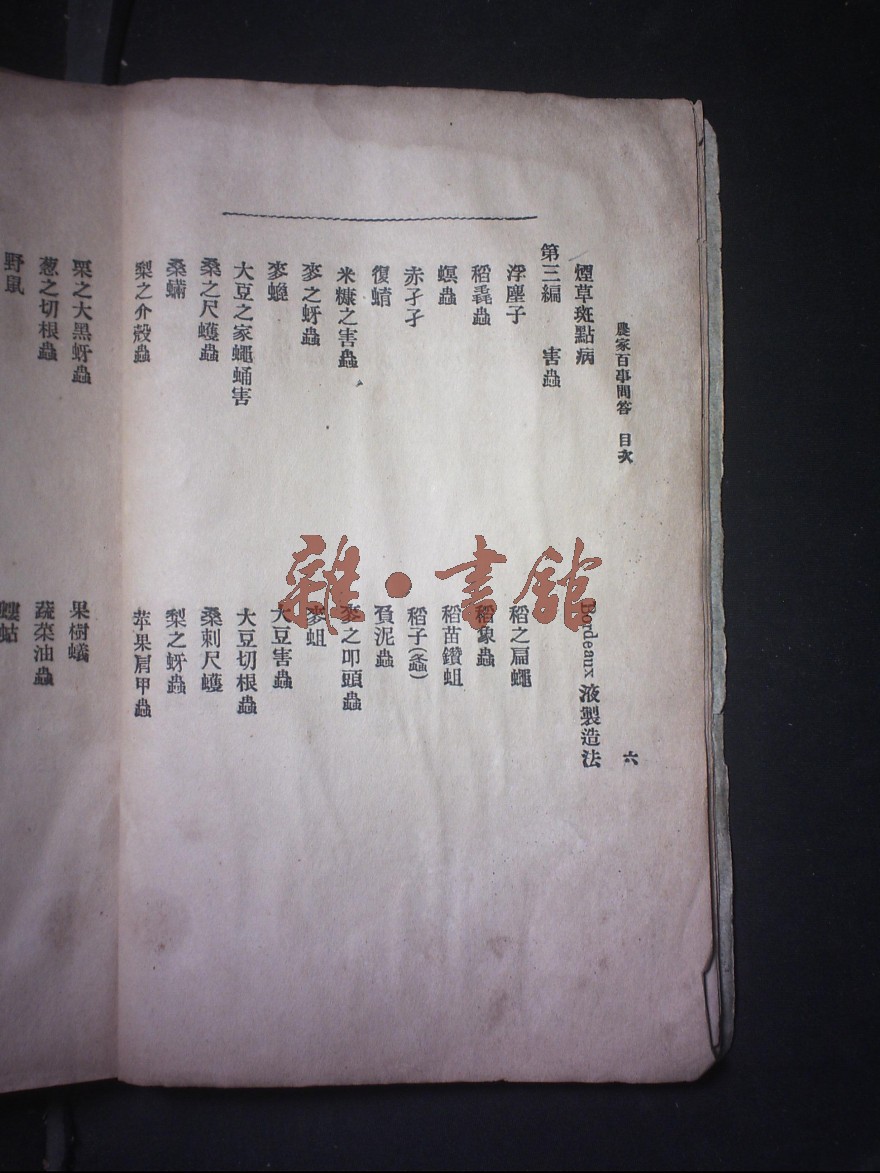 農家百事問答 目次 六
煙草斑點病 Bordeaux 液製造法
第三編 害蟲
浮塵子 稻之扁蠅
稻螽蟲 稻象蟲
螟蟲 稻苗鑽蛆
赤孑孑 稻子(螽)
復蜟 負泥蟲
米糠之害蟲 麥之叩頭蟲
麥之蚜蟲 麥蛆
麥蠅 大豆害蟲
大豆之家蠅蛹害 大豆切根蟲
桑之尺蠖蟲 桑刺尺蠖
桑蟎 梨之蚜蟲
梨之介殼蟲 苹果肩甲蟲
栗之大黑蚜蟲 果樹蟻
葱之切根蟲 蔬菜油蟲
野鼠 螻蛄
雜·書館